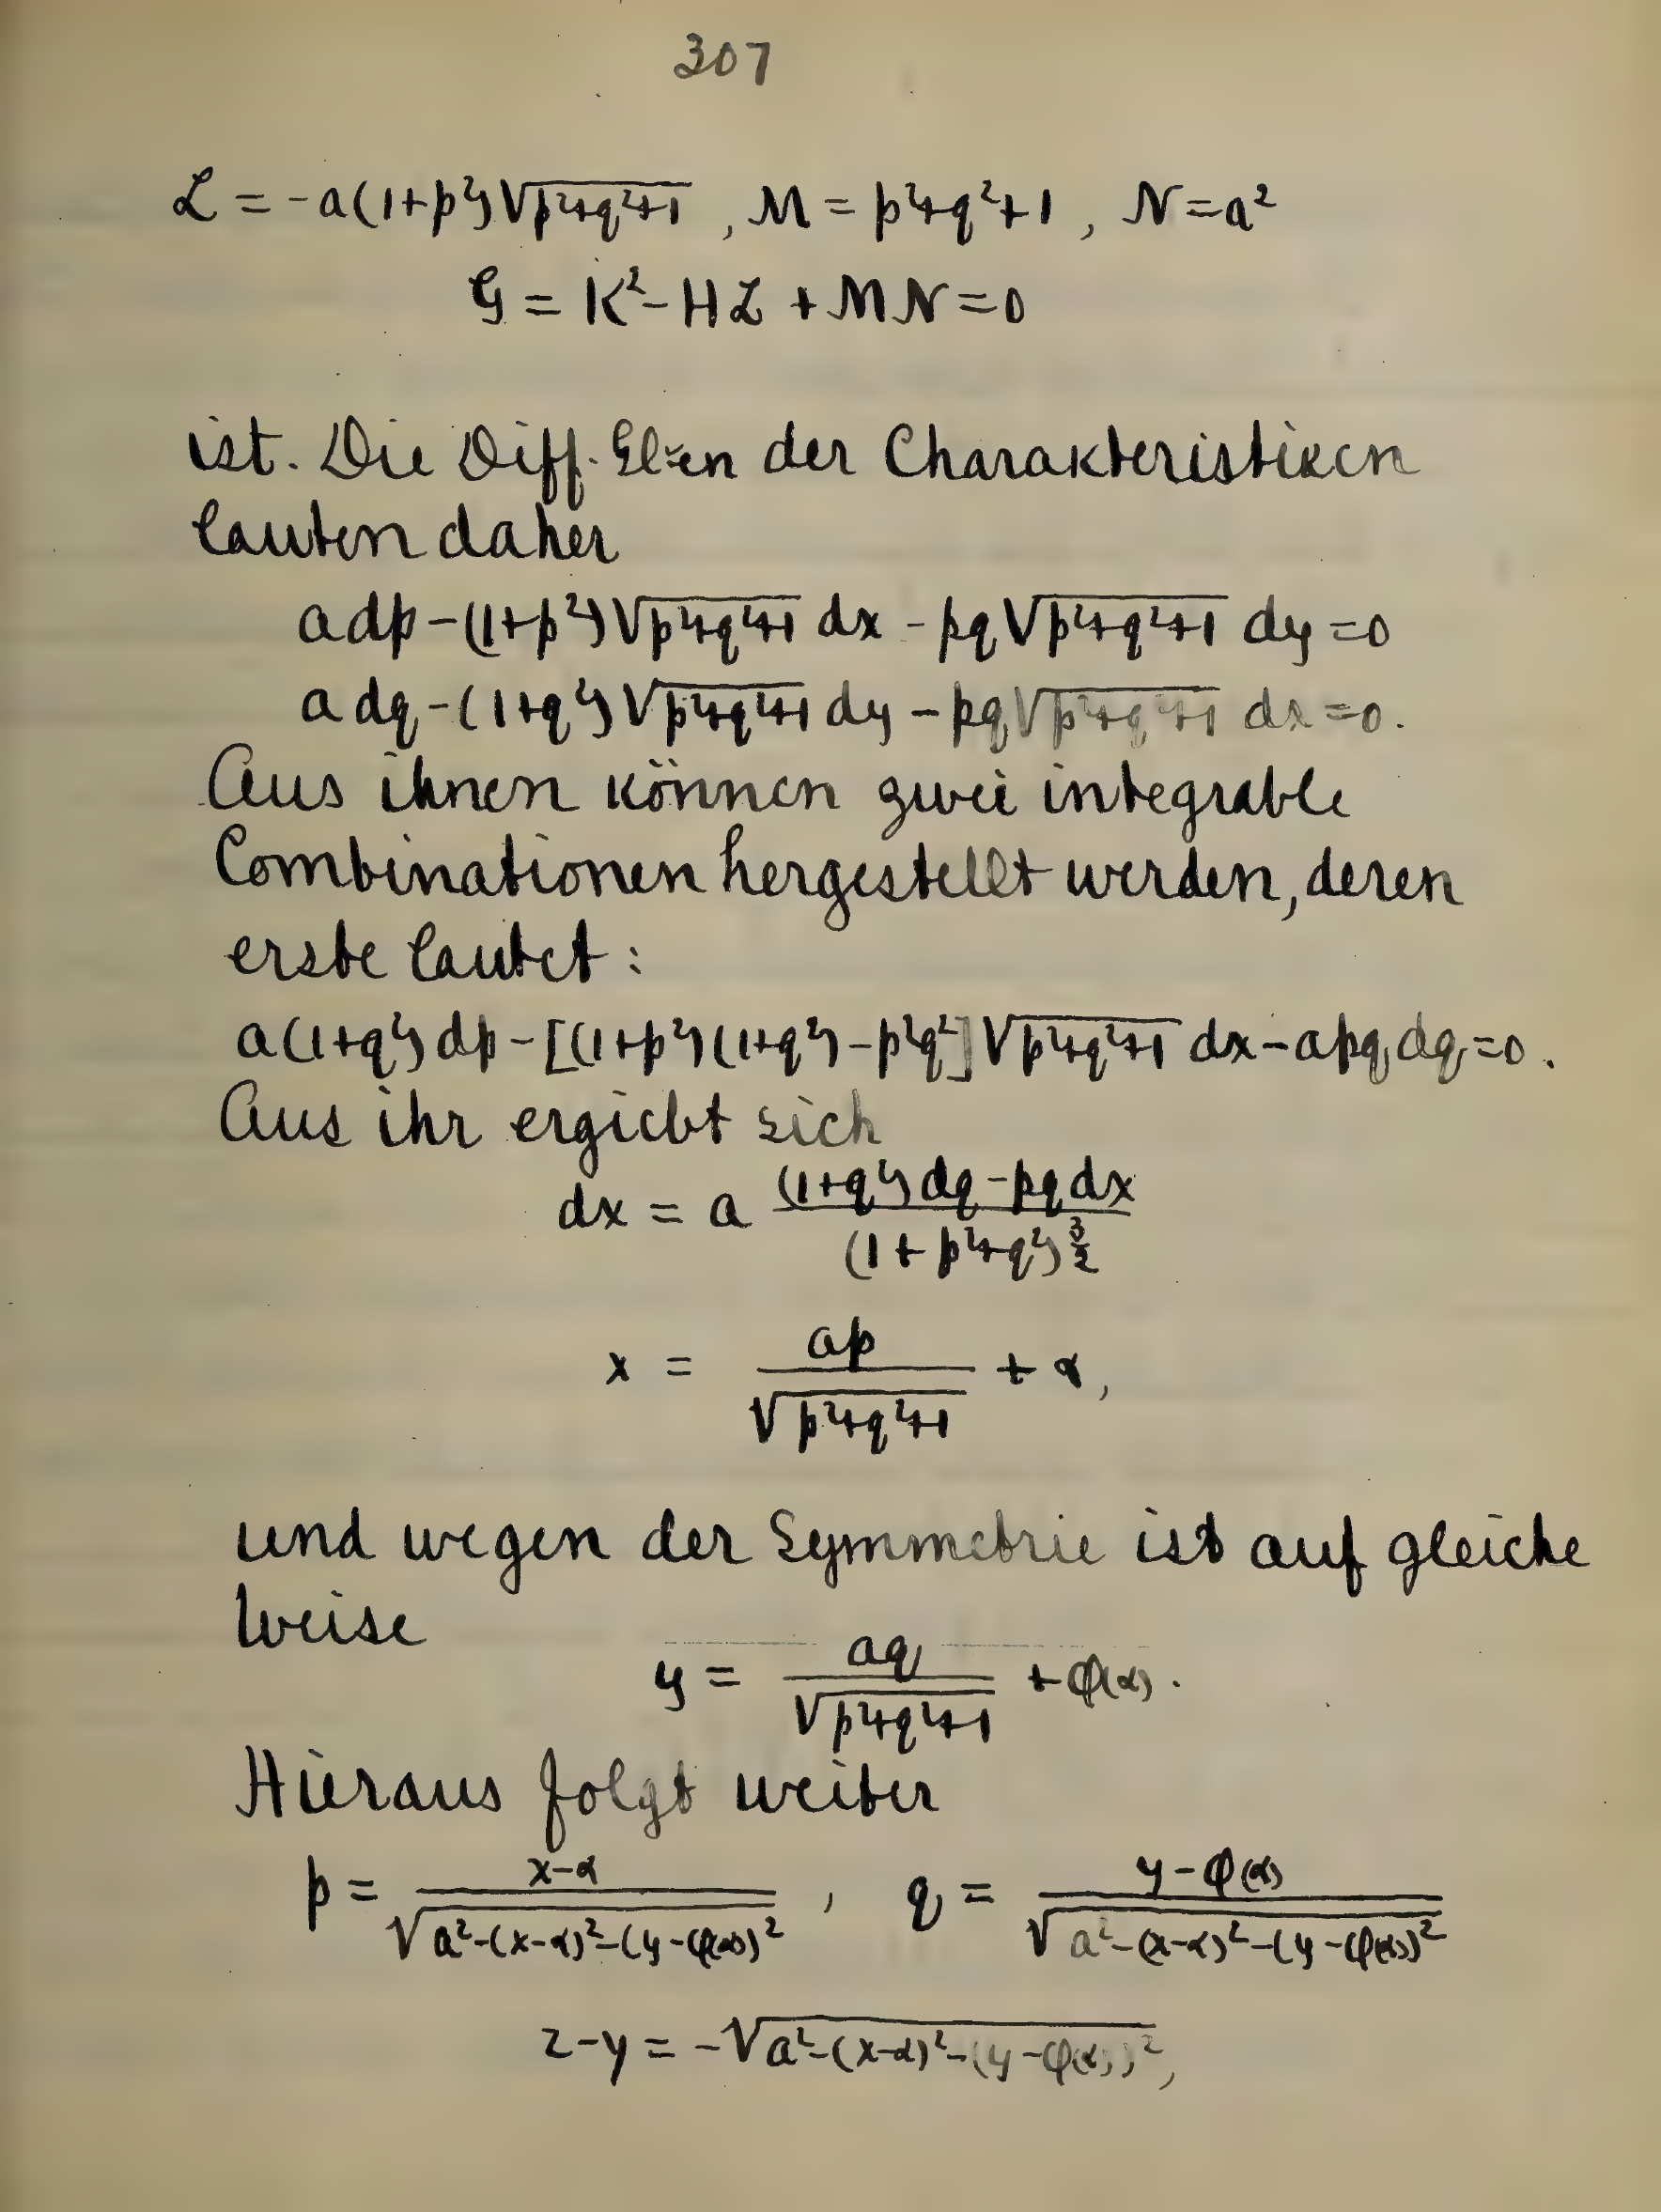 307
L = -a(1+p²)√(p²+q²+1) , M = p²+q²+1 , N = a²
G = K² - HL + MN = 0
ist. Die Diff. Glgen der Charakteristiken
lauten daher
adp - (1+p²)√(p²+q²+1) dx - pq√(p²+q²+1) dy = 0
adq - (1+q²)√(p²+q²+1) dy - pq√(p²+q²+1) dx = 0.
Aus ihnen können zwei integrable
Combinationen hergestellt werden, deren
erste lautet:
a(1+q²)dp - [(1+p²)(1+q²) - p²q²]√(p²+q²+1) dx - apq dq = 0.
Aus ihr ergiebt sich
dx = a ((1+q²)dq - pq dx)/(1+p²+q²)^(3/2)
x = ap/√(p²+q²+1) + α,
und wegen der Symmetrie ist auf gleiche
Weise
y = aq/√(p²+q²+1) + φ(α).
Hieraus folgt weiter
p = (x-α)/√(a²-(x-α)²-(y-φ(α))²) , q = (y-φ(α))/√(a²-(x-α)²-(y-φ(α))²)
z-γ = -√(a²-(x-α)²-(y-φ(α))²),